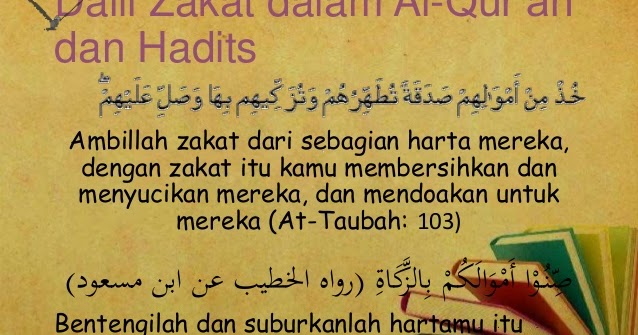 Dalil Zakat dalam Al-Qur'an
dan Hadits
خُذْ مِنْ أَمْوَالِهِمْ صَدَقَةً تُطَهِّرُهُمْ وَتُزَكِّيهِم بِهَا وَصَلِّ عَلَيْهِمْ ۖ
Ambillah zakat dari sebagian harta mereka,
dengan zakat itu kamu membersihkan dan
menyucikan mereka, dan mendoakan untuk
mereka (At-Taubah: 103)
صِّنُوْا أَمْوَالَكُمْ بِالزَّكَاةِ (رواه الخطيب عن ابن مسعود)
Bentengilah dan suburkanlah hartamu itu